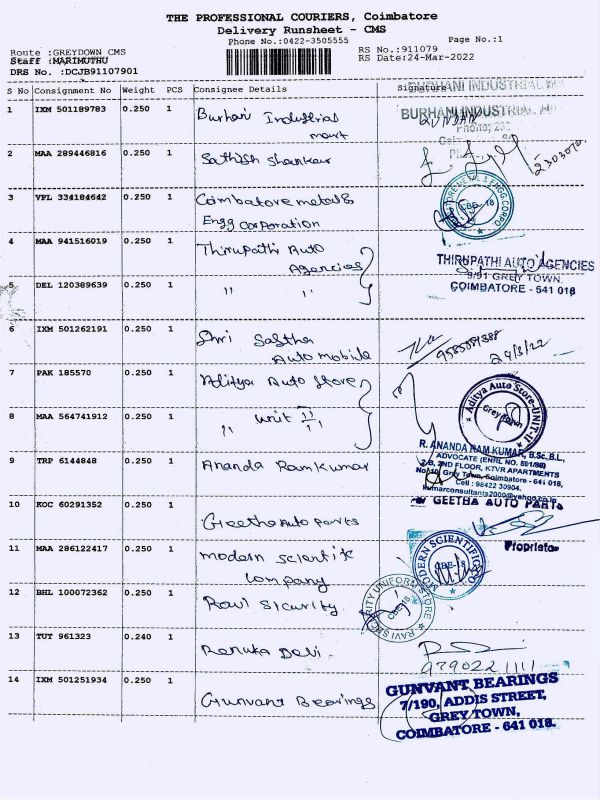 THE PROFESSIONAL COURIERS, Coimbatore
Delivery Runsheet - CMS
Phone No.:0422-3505555
Page No.:1
Route :GREYDOWN CMS
Staff :MARIMUTHU
DRS No. :DCJB91107901
RS No.:911079
RS Date:24-Mar-2022
S No Consignment No Weight PCS Consignee Details Signature
1 IXM 501189783 0.250 1 Burhani Industrial
mart
BURHANI INDUSTRIAL
BURHANI INDUSTRIAL
Phone:
2 MAA 289446816 0.250 1 Sathish Shankar
3 VPL 334184642 0.250 1 Coimbatore metal &
Engg Corporation
CBE-18
4 MAA 941516019 0.250 1 Thirupathi Auto
Agencies
THIRUPATHI AUTO AGENCIES
9/91 GREY TOWN,
COIMBATORE - 641 018
5 DEL 120389639 0.250 1 " "
6 IXM 501262191 0.250 1 Shri Sastha
Automobile
24/3/22
7 PAK 185570 0.250 1 Aditya Auto Store
Aditya Auto Store-UNIT-II
Grey Town
8 MAA 564741912 0.250 1 " unit II
9 TRP 6144848 0.250 1 Ananda Ramkumar
R. ANANDA RAM KUMAR, B.Sc.,B.L.,
ADVOCATE (ENRL NO. 591/98)
2-B, 2ND FLOOR, KTVR APARTMENTS
No. 10, Grey Town, Coimbatore - 641 018,
Cell : 98422 30904.
kumarconsultants2000@yahoo.co.in
10 KOC 60291352 0.250 1 Geetha Auto parts
GEETHA AUTO PARTS
Proprietor
11 MAA 286122417 0.250 1 modern scientific
Company
MODERN SCIENTIFIC CO
CBE-18
12 BHL 100072362 0.250 1 Ravi Sicurity
RAVI SECURITY UNIFORM STORE
CBE-18
13 TUT 961323 0.240 1 Renuka Devi
9790221111
14 IXM 501251934 0.250 1 Gunvant Bearings
GUNVANT BEARINGS
7/190, ADDIS STREET,
GREY TOWN,
COIMBATORE - 641 018.